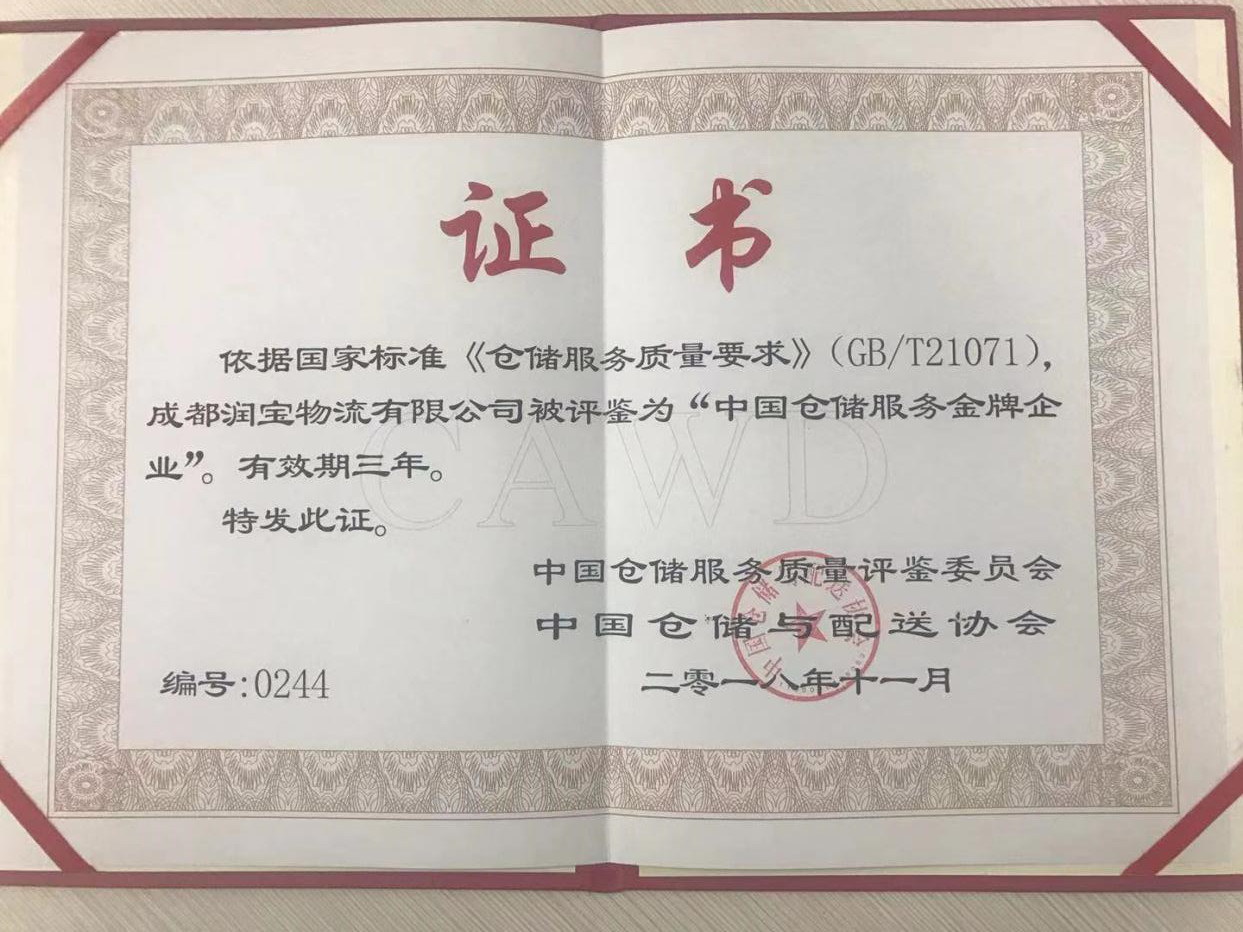 证书
依据国家标准《仓储服务质量要求》（GB/T21071），
成都润宝物流有限公司被评鉴为“中国仓储服务金牌企
业”。有效期三年。
特发此证。
CAWD
中国仓储服务质量评鉴委员会
中国仓储与配送协会
中国仓储与配送协会
编号:0244
二零一八年十一月